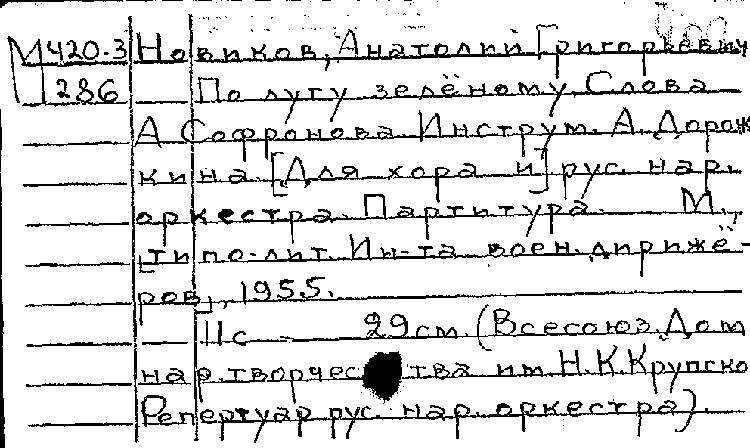 М420.3 Новиков, Анатолий Григорьевич
1286 По лугу зелёному. Слова
А Софронова. Инструм. А. Дорож
кина. [Для хора и] рус. нар.
оркестра. Партитура. М.,
[типо-лит. Ин-та воен. дирижё-
ров], 1955.
11с 29см. (Всесоюз. Дом
нар. творчества им. Н.К. Крупско
Репертуар рус. нар. оркестра).